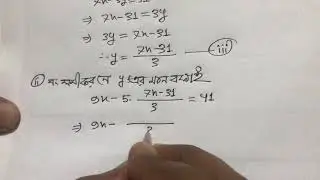 7x-3y=31
⇒ 7x-31=3y
⇒ 3y=7x-31
∴ y = (7x-31)/3 — iii
ii নং সমীকরণে y এর মান বসাই
9x-5·(7x-31)/3 = 41
⇒ 9x-